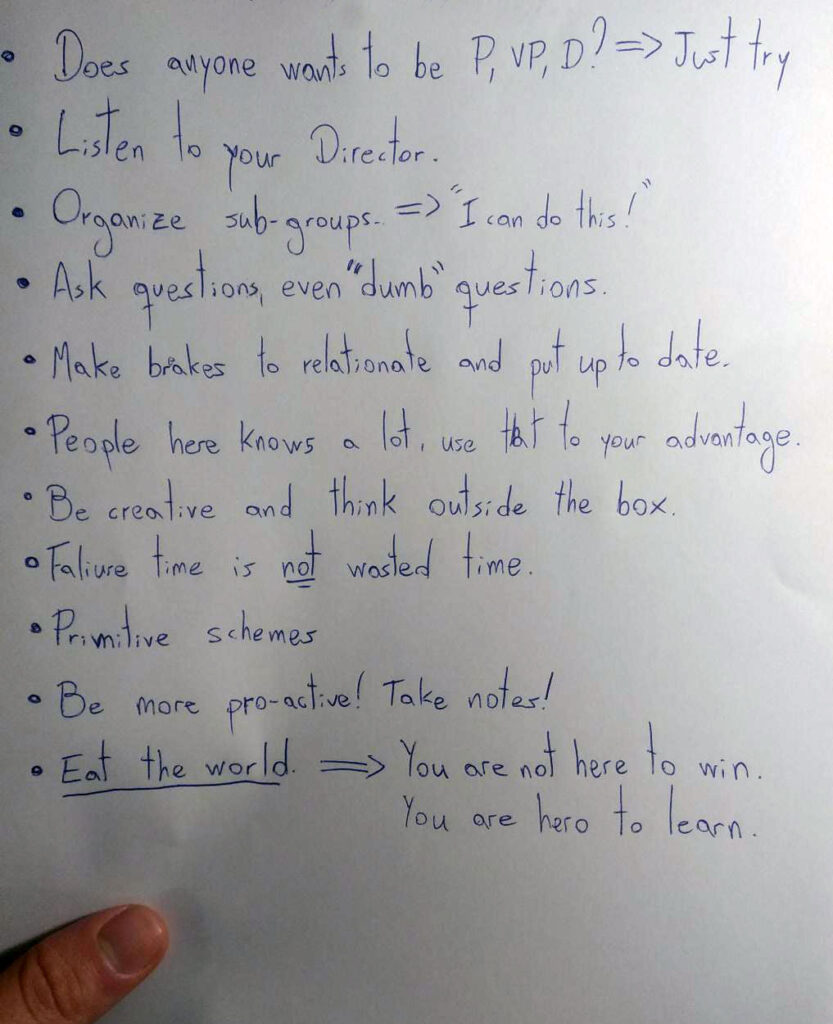 • Does anyone wants to be P, VP, D? => Just try
• Listen to your Director.
• Organize sub-groups. => "I can do this!"
• Ask questions, even "dumb" questions.
• Make brakes to relationate and put up to date.
• People here knows a lot, use that to your advantage.
• Be creative and think outside the box.
• Faliure time is not wasted time.
• Primitive schemes
• Be more pro-active! Take notes!
• Eat the world. => You are not here to win.
You are here to learn.